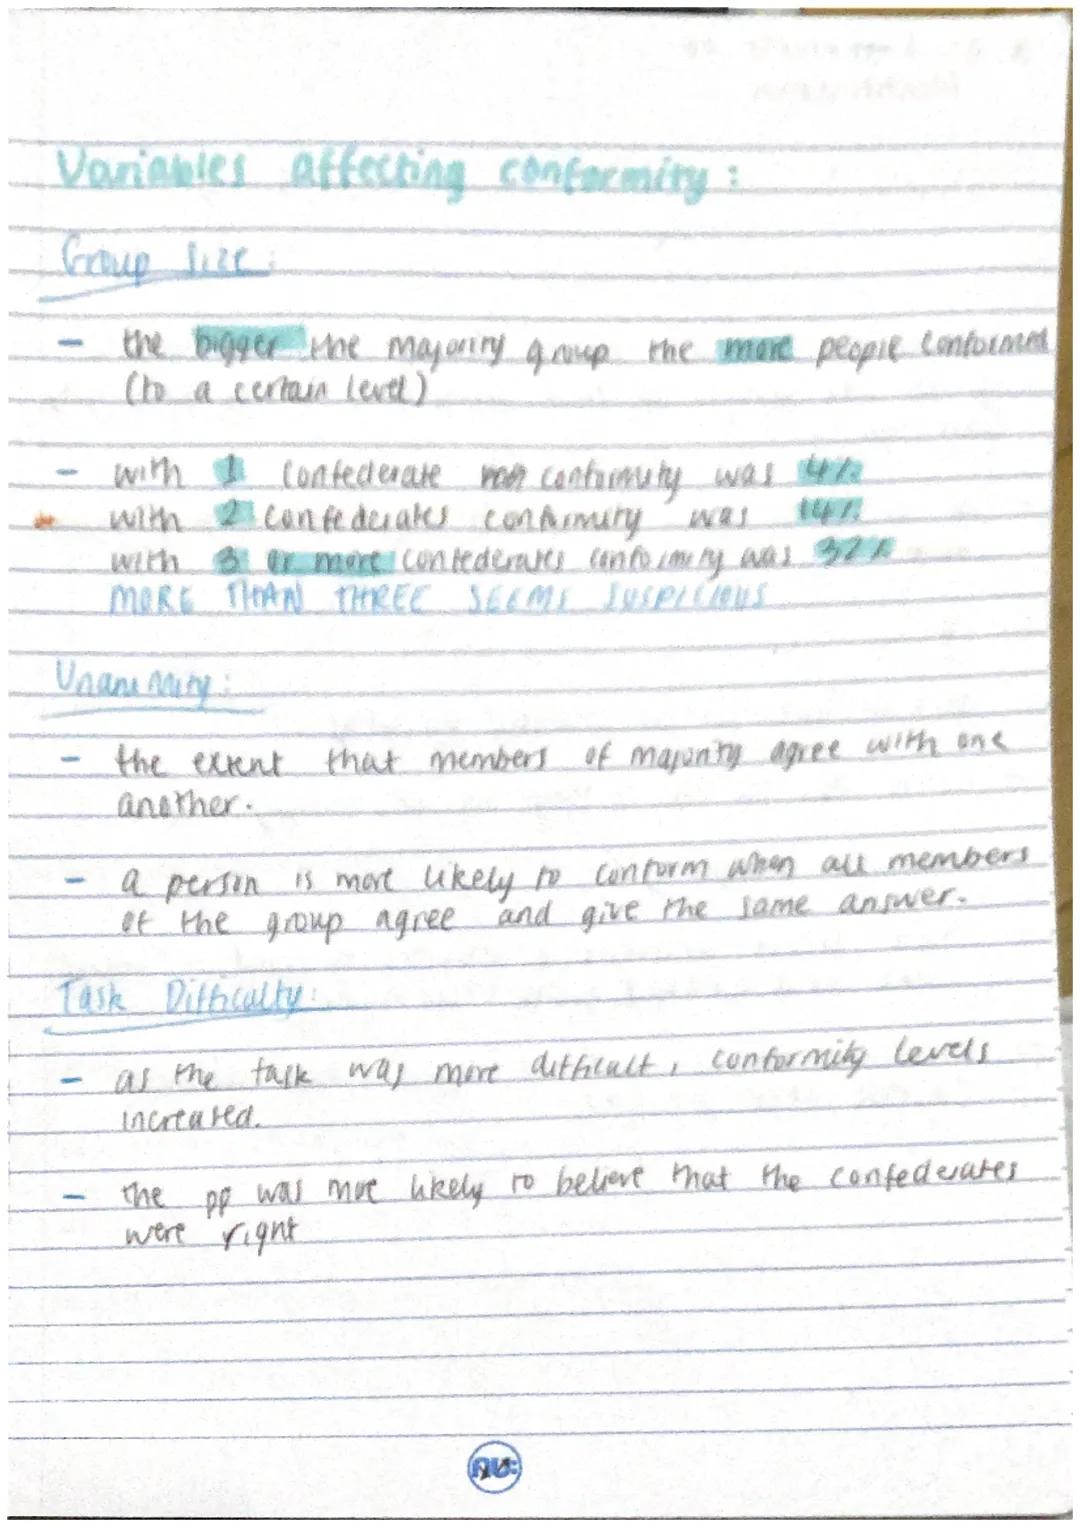 Variables affecting conformity:
Group Size:
- the bigger the majority group the more people conformed
(to a certain level)
- with 1 confederate conformity was 4%
with 2 confederates conformity was 14%
with 3 or more confederates conformity was 32%
MORE THAN THREE SEEMS SUSPICIOUS
Unanimity:
- the extent that members of majority agree with one
another.
- a person is more likely to conform when all members
of the group agree and give the same answer.
Task Difficulty:
- as the task was more difficult, conformity levels
increased.
- the pp was more likely to believe that the confederates
were right